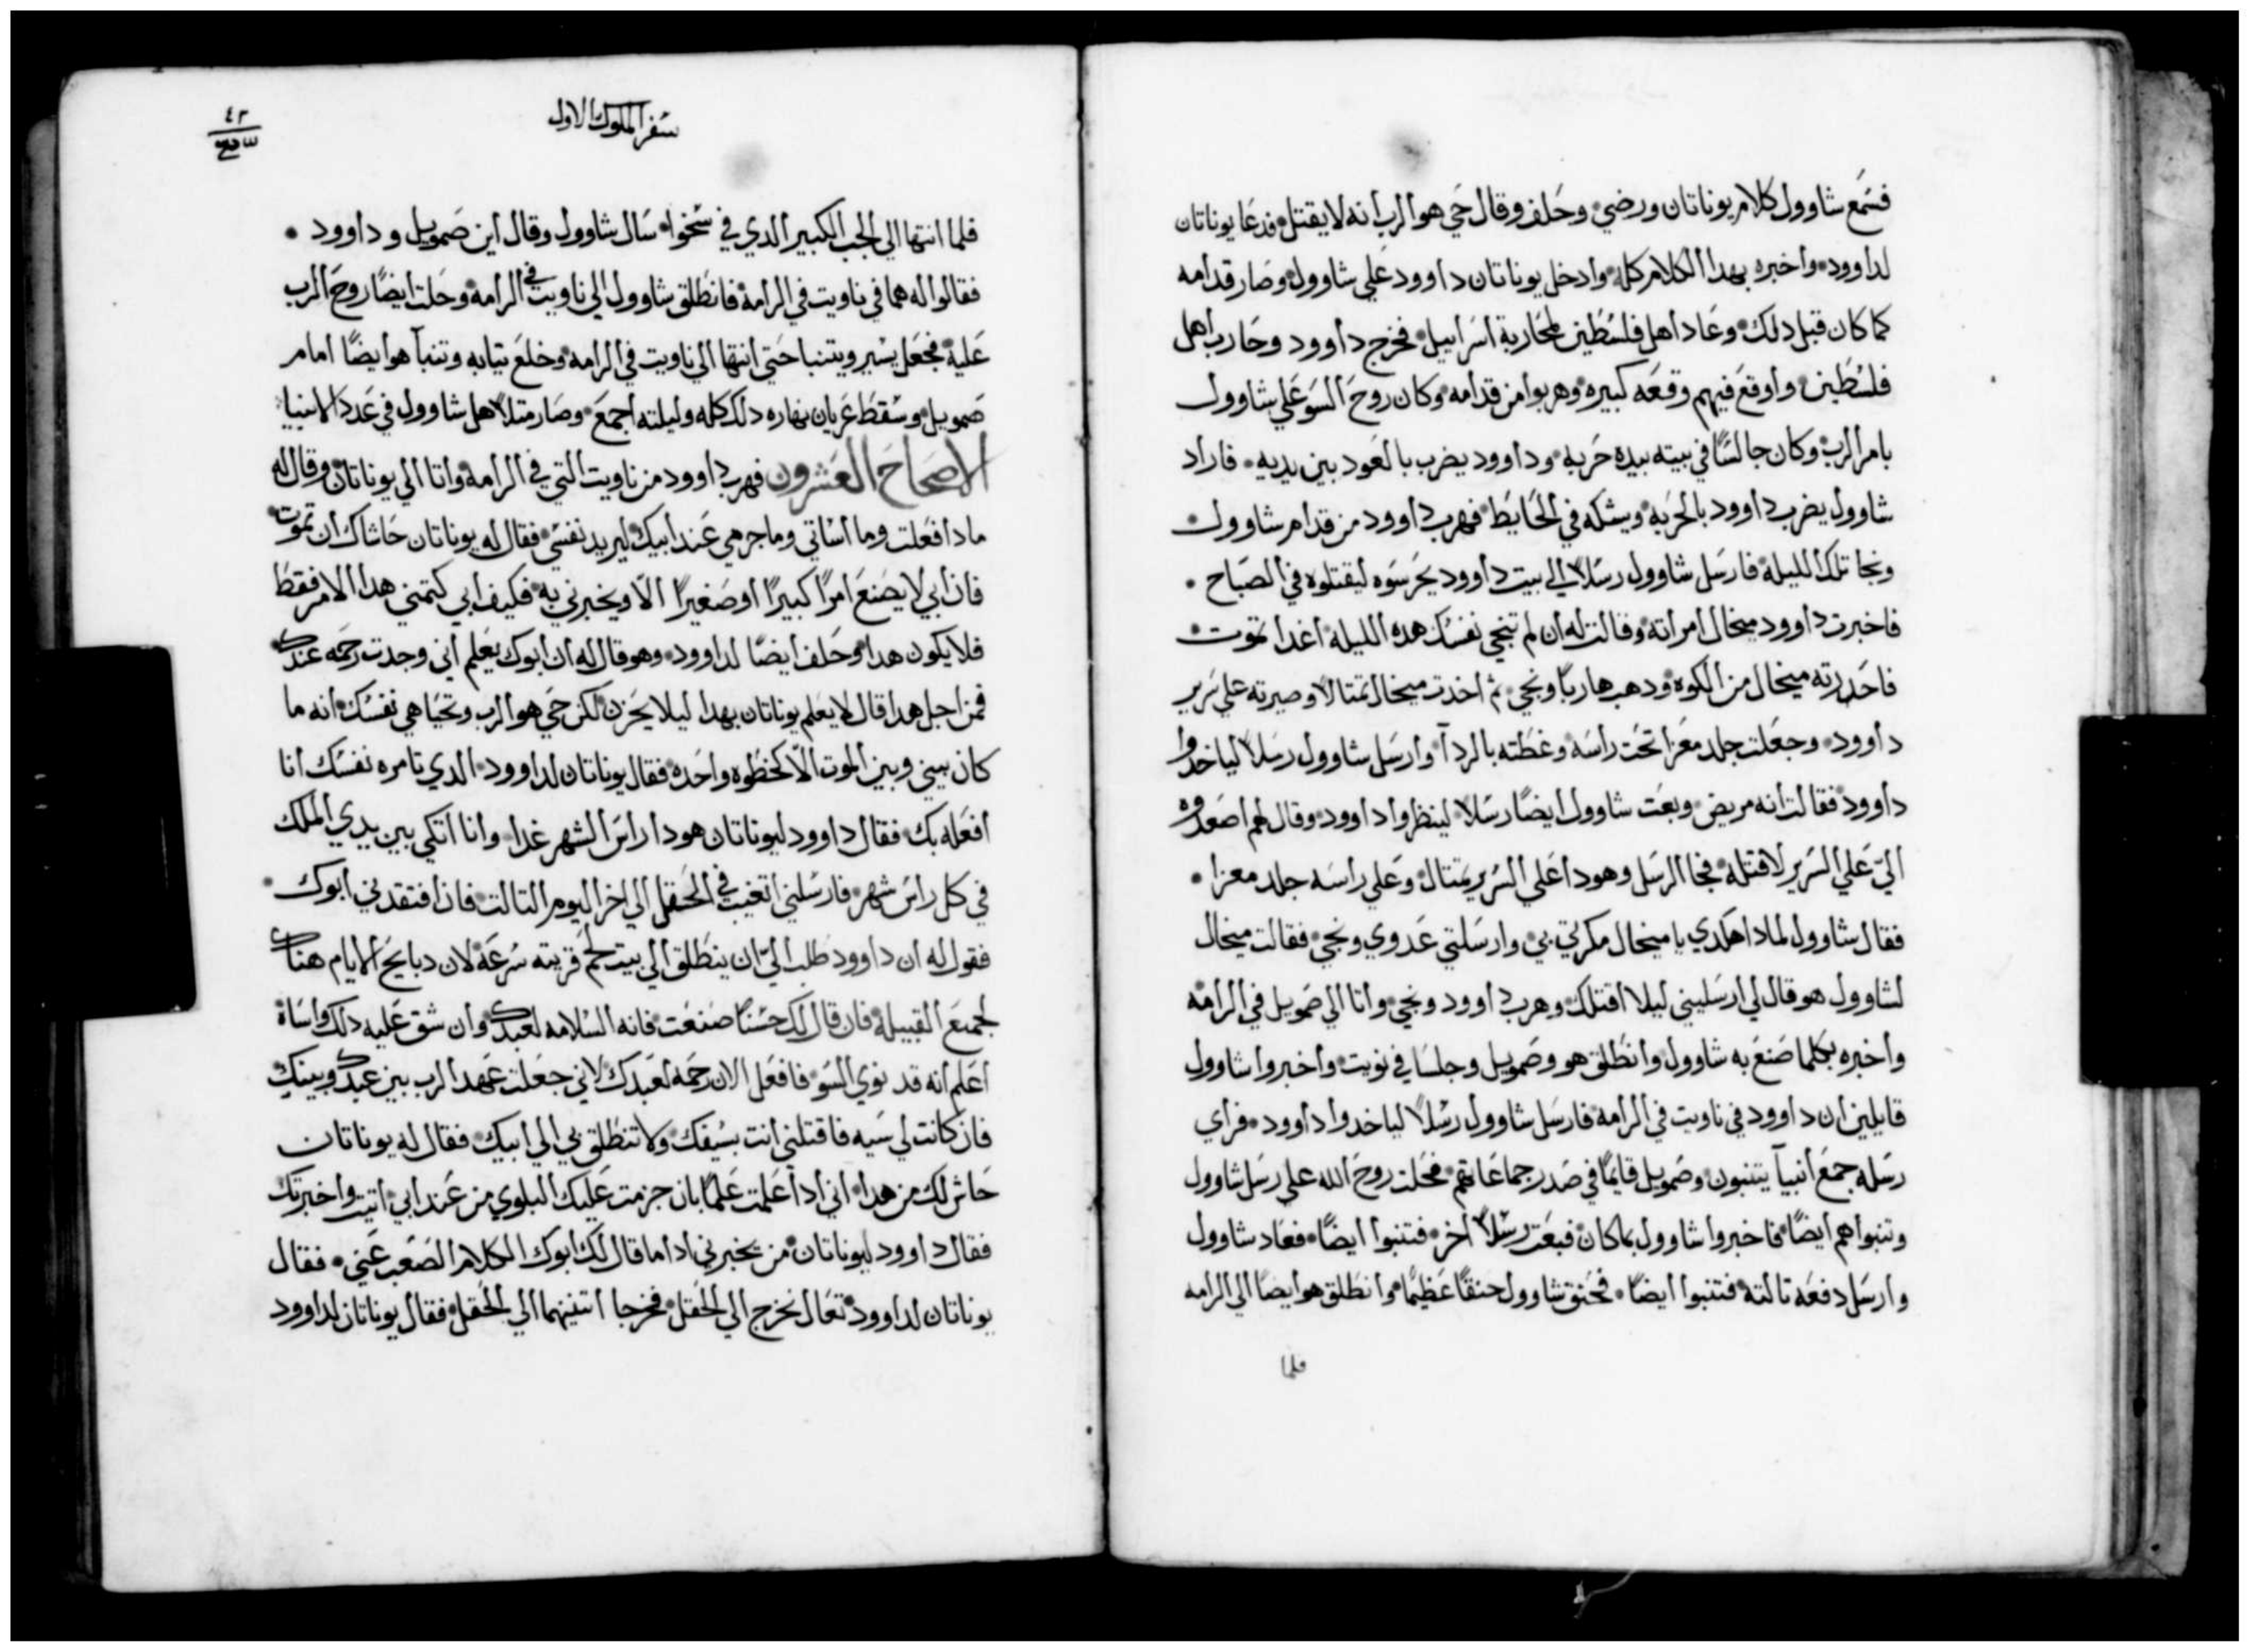 فسمع شاوول كلام يوناتان ورضي وحلف وقال حي هو الرب انه لا يقتل فدعا يوناتان
لداوود واخبره بهدا الكلام كله وادخل يوناتان داوود علي شاوول وصار قدامه
كما كان قبل دلك وعاد اهل فلسطين لمحاربة اسراييل فخرج داوود وحارب اهل
فلسطين واوقع فيهم وقعه كبيره وهربوا من قدامه وكان روح السو علي شاوول
بامر الرب وكان جالسًا في بيته بيده حربه وداوود يضرب بالعود بين يديه فاراد
شاوول يضرب داوود بالحربه ويشكه في الحايط فهرب داوود من قدام شاوول
ونجا تلك الليلة فارسل شاوول رسلًا الي بيت داوود يحرسوه ليقتلوه في الصباح
فاخبرت داوود ميخال امراته وقالت له ان لم تنجي نفسك هده الليلة اغدا تموت
فاحدرته ميخال من الكوه ودهب هاربًا ونجي ثم اخدت ميخال تمتالا وصيرته علي سرير
داوود وجعلت جلد معزا تحت راسه وغطته بالردآ وارسل شاوول رسلًا لياخدوا
داوود فقالت انه مريض وبعت شاوول ايضًا رسلًا لينظروا داوود وقال لهم اصعدوه
اليّ علي السرير لاقتله فجا الرسل وهودا علي السرير تمتال وعلي راسه جلد معزا
فقال شاوول لمادا هكدي يا ميخال مكرتي بي وارسلتي عدوي ونجي فقالت ميخال
لشاوول هو قال لي ارسليني ليلا اقتلك وهرب داوود ونجي واتا الي صمويل في الرامه
واخبره بكلما صنع به شاوول وانطلق هو وصمويل وجلسا في نويت واخبروا شاوول
قايلين ان داوود في ناويت في الرامه فارسل شاوول رسلًا لياخدوا داوود فراي
رسله جمع انبيآ يتنبون وصمويل قايمًا في صدر جماعاتهم فحلت روح الله علي رسل شاوول
وتنبوا هم ايضًا فاخبروا شاوول بما كان فبعت رسلًا اخر فتنبوا ايضًا فعاد شاوول
وارسل دفعه تالته فتنبوا ايضًا فحنق شاوول حنقًا عظيمًا وانطلق هو ايضًا الي الرامه
فلما
سفر الملوك الاول
٤٢
فلما انتها الي الجب الكبير الدي في سخوا سال شاوول وقال اين صمويل وداوود
فقالوا له هما في ناويت في الرامة فانطلق شاوول الي ناويت في الرامه وحلت ايضًا روح الرب
عليه فجعل يسير ويتنبا حتي انتها الي ناويت في الرامه وخلع تيابه وتنبآ هو ايضًا امام
صمويل وسقط عريان نهاره دلك كله وليلته اجمع وصار متلا هل شاوول في عدد الانبيا
الاصحاح العشرون فهرب داوود من ناويت التي في الرامة واتا الي يوناتان وقال له
مادا فعلت وما اساتي وما جرمي عند ابيك ليريد نفسي فقال له يوناتان حاشاك ان تموت
فان ابي لا يصنع امرًا كبيرًا او صغيرًا الّا ويخبرني به فكيف ابي كتمني هدا الامر فقط
فلا يكون هدا وحلف ايضًا لداوود وهو قال له ان ابوك يعلم اني وجدت رحمه عندك
فمن اجل هدا قال لا يعلم يوناتان بهدا ليلا يحزن لكن حي هو الرب وتحيا هي نفسك انه ما
كان بيني وبين الموت الّا كخطوه واحده فقال يوناتان لداوود الدي تامره نفسك انا
افعله بك فقال داوود ليوناتان هودا راس الشهر غدا وانا اتكي بين يدي الملك
في كل راس شهر فارسلني اتغيب في الحقل الي اخر اليوم التالت فان افتقدني ابوك
فقول له ان داوود طلب اليّ ان ينطلق الي بيت لحم قريته سرعة لان دبايح الايام هناك
لجميع القبيلة فان قال لك حسنًا صنعت فانه السلامه لعبدك وان شق عليه دلك واساة
اعلم انه قد نوي السو فافعل الان رحمه لعبدك لاني جعلت عهد الرب بين عبدك وبينك
فان كانت لي سيه فاقتلني انت بسيفك ولا تنطلق بي الي ابيك فقال له يوناتان
حاش لك من هدا اني ادا علمت علمًا بان جزمت عليك البلوي من عند ابي اتيت واخبرتك
فقال داوود ليوناتان من يخبرني ادا ما قال لك ابوك الكلام الصعب عني فقال
يوناتان لداوود تعال نخرج الي الحقل فخرجا اتنينهما الي الحقل فقال يوناتان لداوود